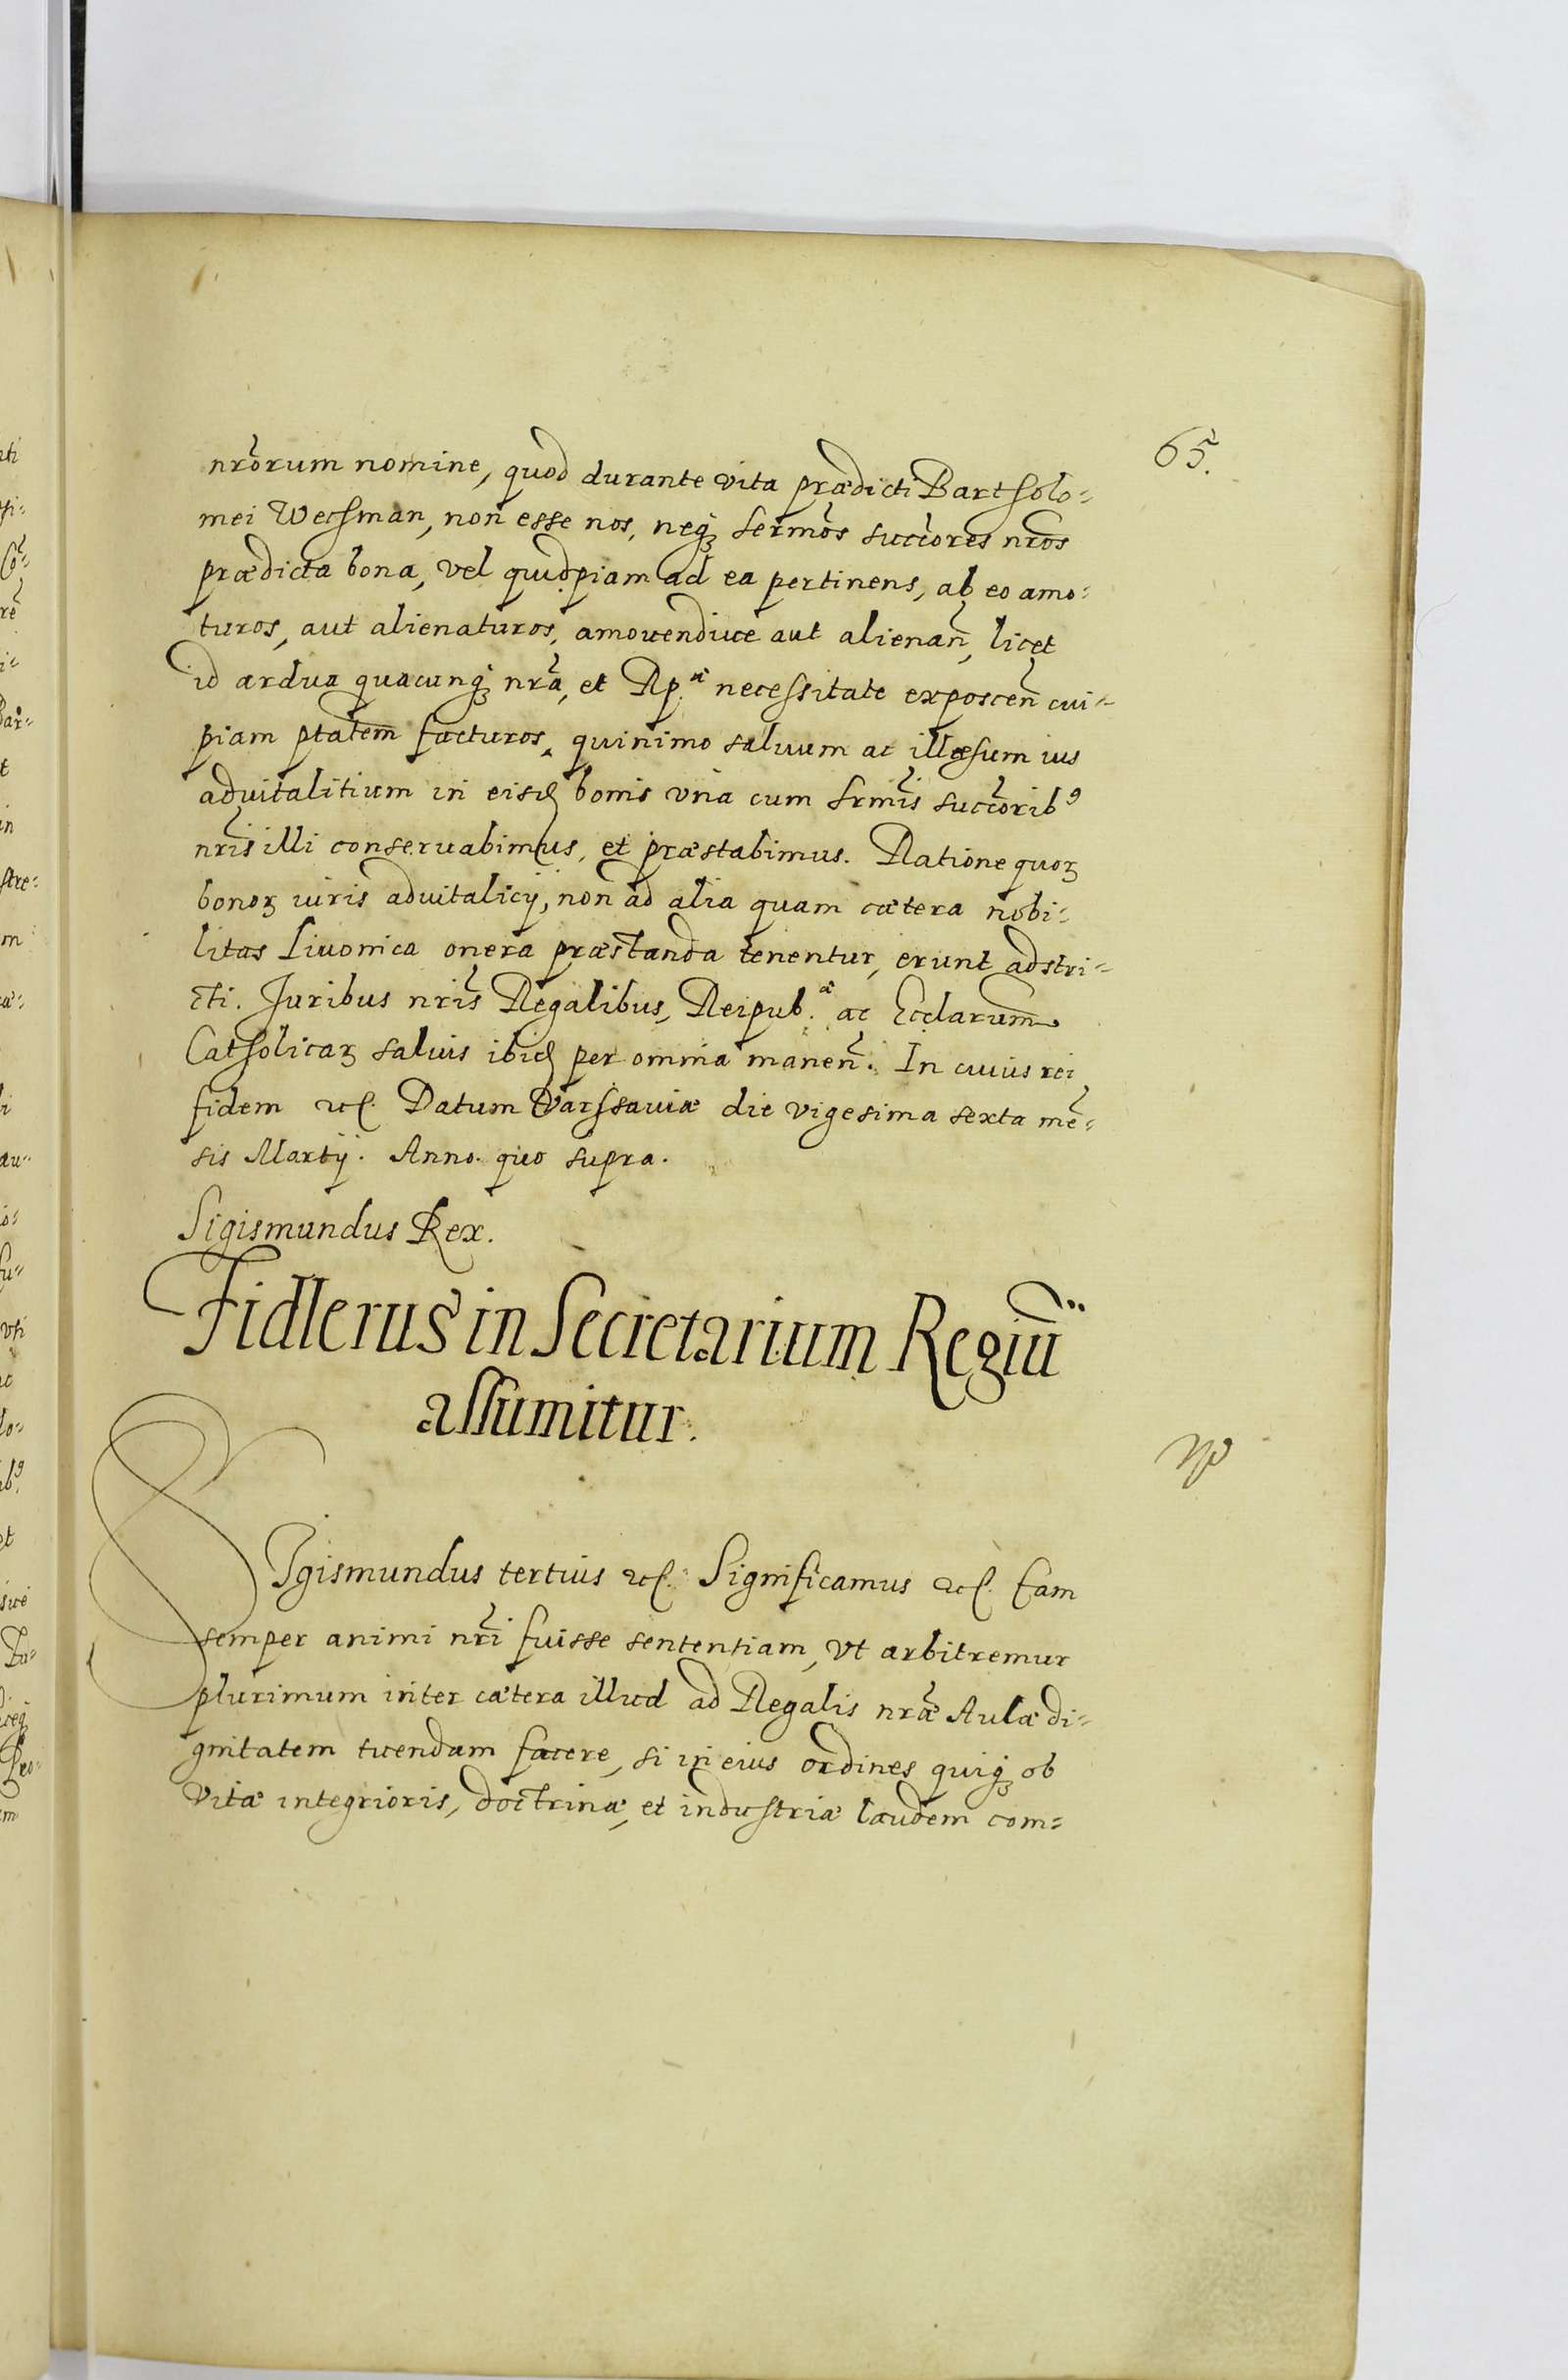 65.
nr̃orum nomine, quod durante vita prædicti Bartholo=
mei Wechman, non esse nos, neq; sermõs succ̃ores nr̃os
prædicta bona, vel quidpiam ad ea pertinens, ab eo amo=
turos, aut alienaturos, amouendiue aut alienañ, licet
id ardua quacunq; nr̃a, et Rp.æ necessitate exposceñ cui=
piam ptatem̃ facturos, quinimo saluum ac illæsum ius
aduitalitium in eisd. bonis vna cum srmĩs succ̃orib9
nr̃is illi conseruabimus, et præstabimus. Ratione quoꝝ
bonoꝝ iuris aduitalicij, non ad alia quam cætera nobi=
litas Liuonica onera præstanda tenentur, erunt adstri=
cti. Juribus nr̃is Regalibus, Reipub.æ ac Ecclarum̃
Catholicaꝝ saluis ibid. per omnia maneñ. In cuius rei
fidem etc. Datum Varssauiæ die vigesima sexta mẽ=
sis Martij. Anno quo supra.
Sigismundus Rex.
Fidlerus in Secretarium Regiũ
assumitur.
SIgismundus tertius etc. Significamus etc. Eam
semper animi nr̃i fuisse sententiam, vt arbitremur
plurimum inter cætera illud ad Regalis nr̃æ Aulæ di=
gnitatem tuendam facere, si in eius ordines quiq; ob
vitæ integrioris, doctrinæ, et industriæ laudem com=